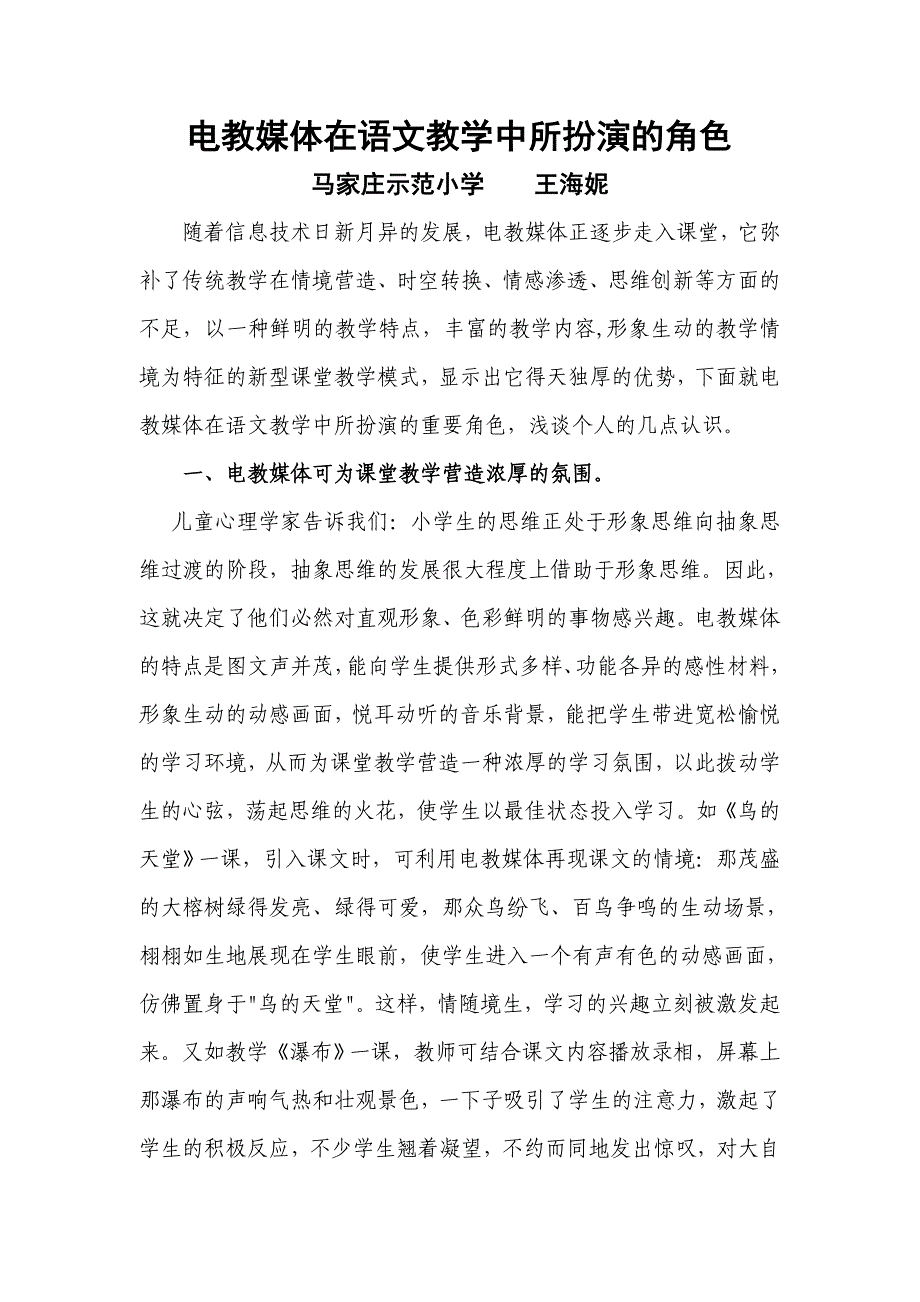 电教媒体在语文教学中所扮演的角色
马家庄示范小学 王海妮
随着信息技术日新月异的发展，电教媒体正逐步走入课堂，它弥
补了传统教学在情境营造、时空转换、情感渗透、思维创新等方面的
不足，以一种鲜明的教学特点，丰富的教学内容,形象生动的教学情
境为特征的新型课堂教学模式，显示出它得天独厚的优势，下面就电
教媒体在语文教学中所扮演的重要角色，浅谈个人的几点认识。
一、电教媒体可为课堂教学营造浓厚的氛围。
儿童心理学家告诉我们：小学生的思维正处于形象思维向抽象思
维过渡的阶段，抽象思维的发展很大程度上借助于形象思维。因此，
这就决定了他们必然对直观形象、色彩鲜明的事物感兴趣。电教媒体
的特点是图文声并茂，能向学生提供形式多样、功能各异的感性材料，
形象生动的动感画面，悦耳动听的音乐背景，能把学生带进宽松愉悦
的学习环境，从而为课堂教学营造一种浓厚的学习氛围，以此拨动学
生的心弦，荡起思维的火花，使学生以最佳状态投入学习。如《鸟的
天堂》一课，引入课文时，可利用电教媒体再现课文的情境：那茂盛
的大榕树绿得发亮、绿得可爱，那众鸟纷飞、百鸟争鸣的生动场景，
栩栩如生地展现在学生眼前，使学生进入一个有声有色的动感画面，
仿佛置身于"鸟的天堂"。这样，情随境生，学习的兴趣立刻被激发起
来。又如教学《瀑布》一课，教师可结合课文内容播放录相，屏幕上
那瀑布的声响气热和壮观景色，一下子吸引了学生的注意力，激起了
学生的积极反应，不少学生翘着凝望，不约而同地发出惊叹，对大自